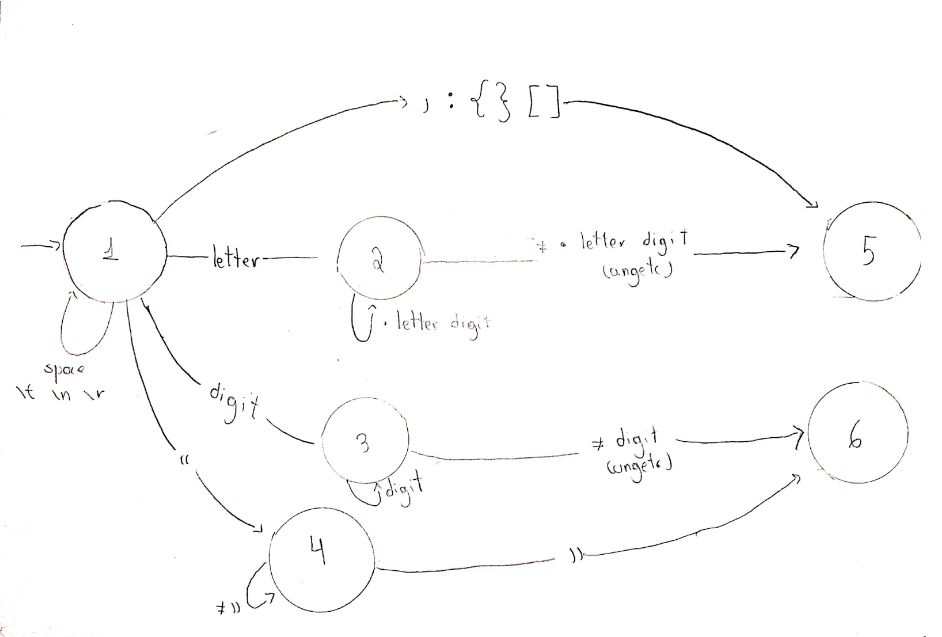 , : { } [ ]
1
letter
2
≠ . letter digit
(ungetc)
5
. letter digit
space
\t \n \r
digit
3
≠ digit
(ungetc)
6
digit
"
4
"
≠ "